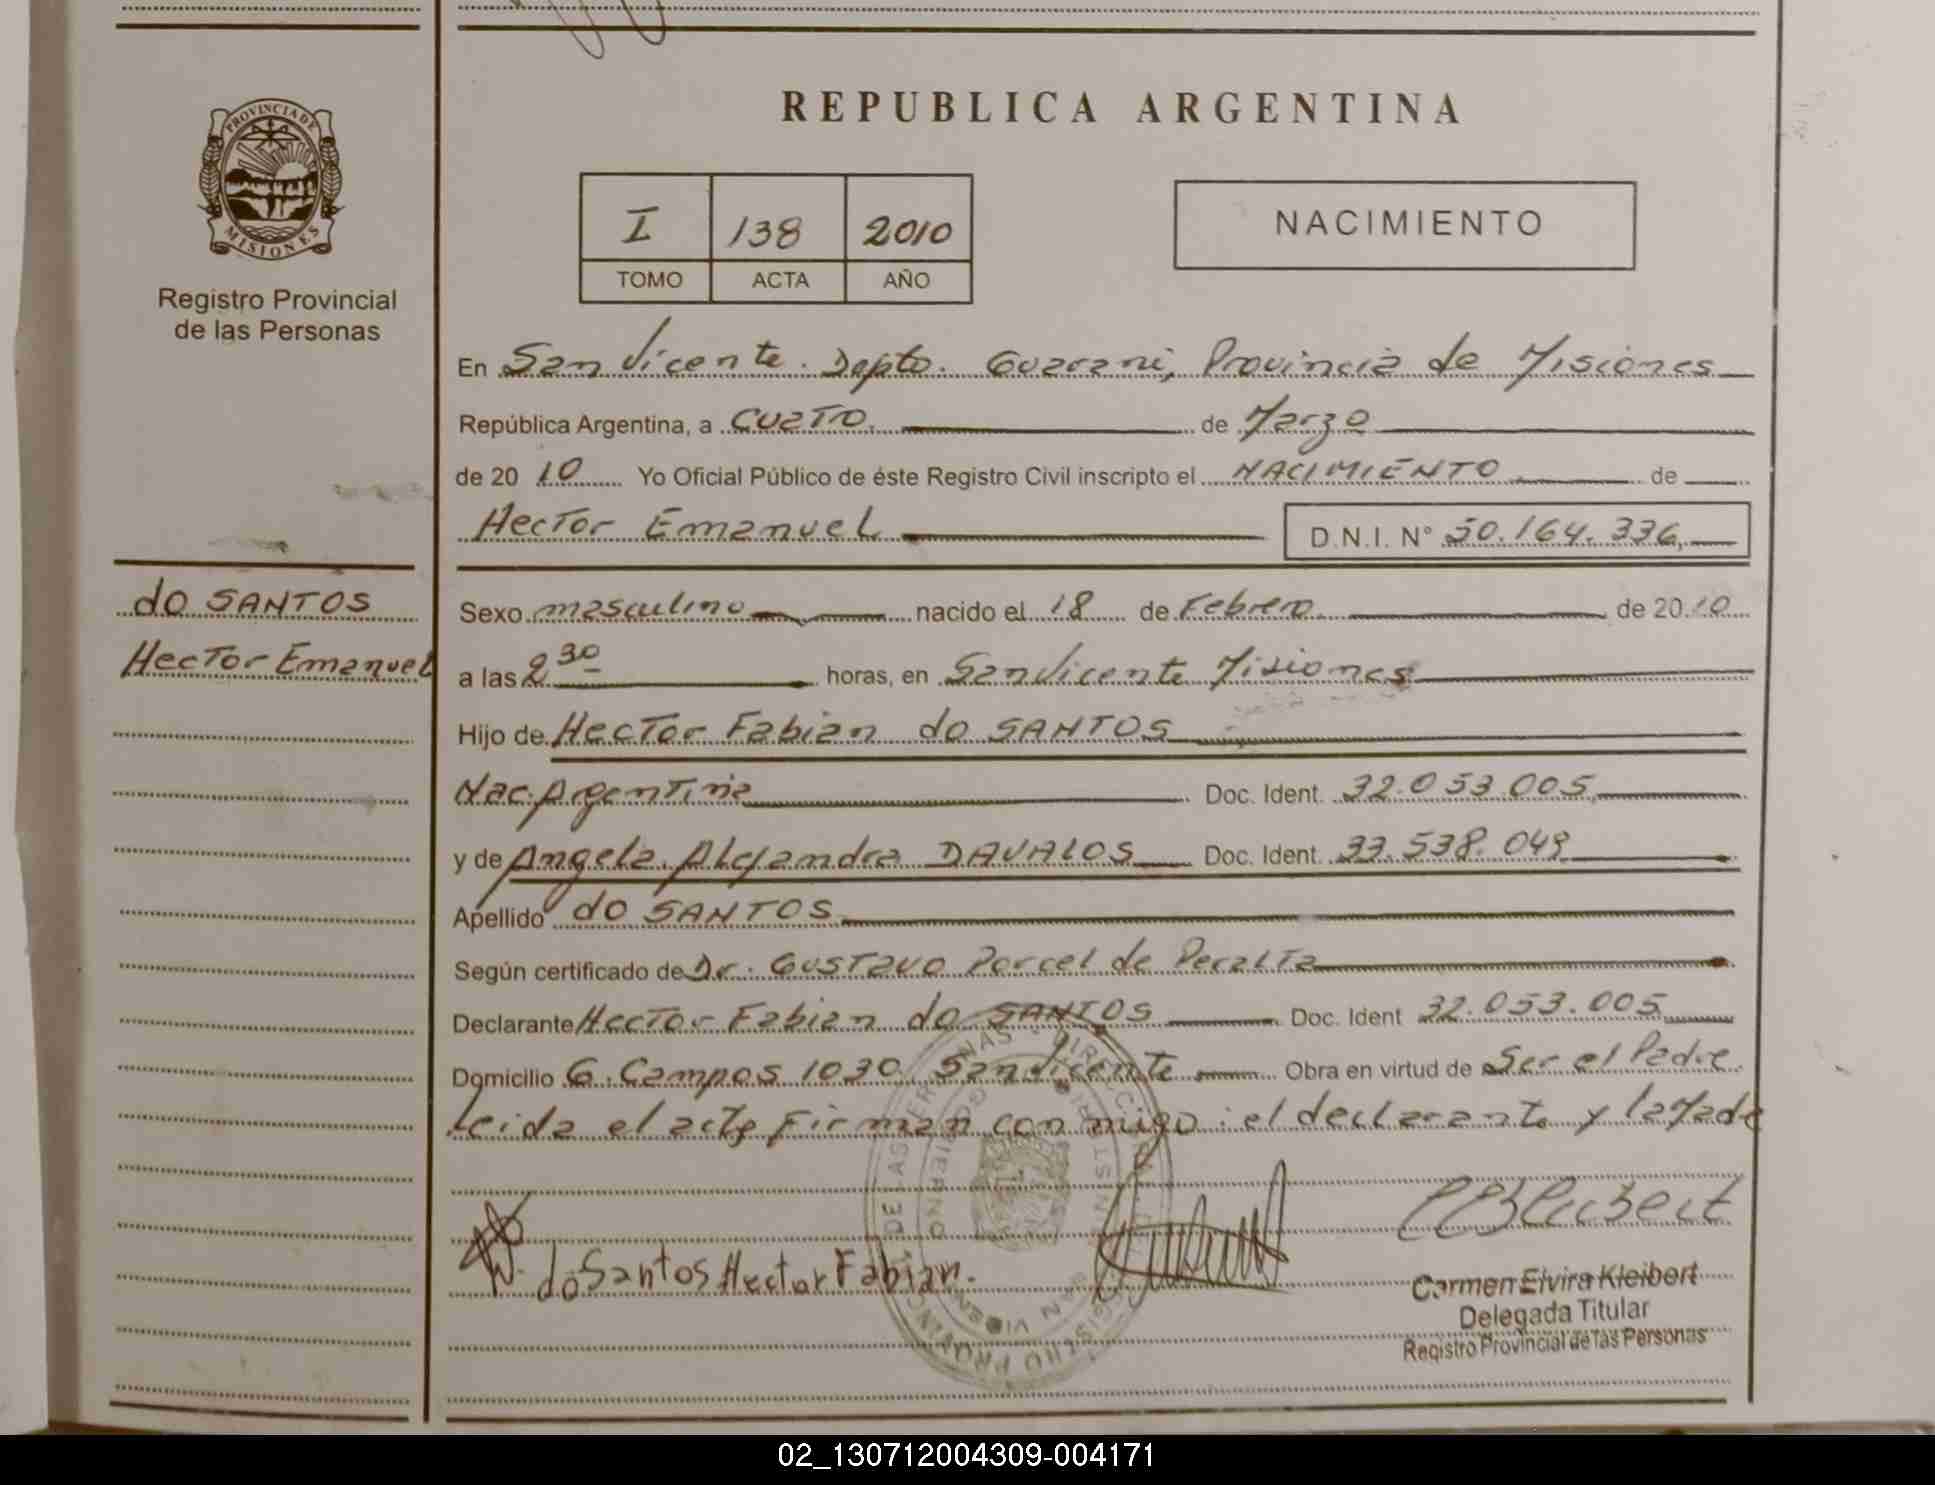 REPUBLICA ARGENTINA
PROVINCIA DE
MISIONES
Registro Provincial
de las Personas
I 138 2010
TOMO ACTA AÑO
NACIMIENTO
En San Vicente. Depto. Guarani, Provincia de Misiones
República Argentina, a cuatro de Marzo
de 2010 Yo Oficial Público de éste Registro Civil inscripto el NACIMIENTO de
Hector Emanuel D.N.I. N° 50.164.336
do SANTOS
Hector Emanuel
Sexo masculino nacido el 18 de Febrero de 2010
a las 2 30 horas, en San Vicente Misiones
Hijo de Hector Fabian do SANTOS
Nac. Argentina Doc. Ident. 32.053.005
y de Angela Alejandra DAVALOS Doc. Ident. 33.538.049
Apellido do SANTOS
Según certificado de Dr. Gustavo Porcel de Peralta
Declarante Hector Fabian do SANTOS Doc. Ident 32.053.005
Domicilio G. Campos 1030 San Vicente Obra en virtud de Ser el Padre
Leida el acta Firman con migo: el declarante y la Made
do Santos Hector Fabian.
Carmen Elvira Kleibert
Delegada Titular
Registro Provincial de las Personas
02_130712004309-004171